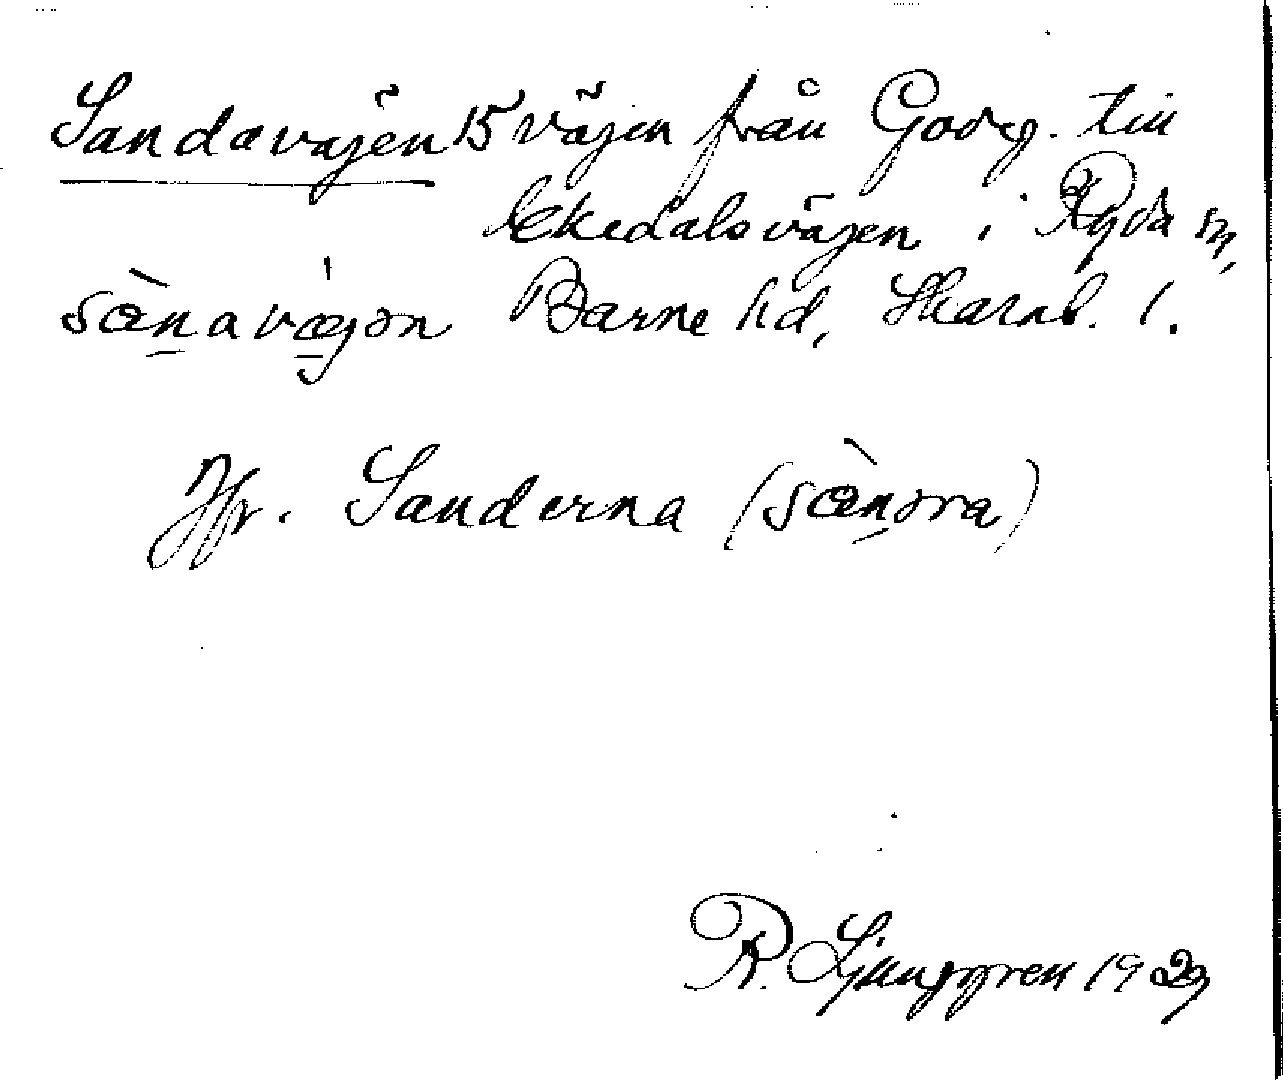 Sandavägen 15 vägen från Gorg. till
Ekedalsvägen i Ryda sn,
sæ̀n̲avæ̲̍gən Barne hd, Skarab. l.
Jfr. Sanderna (sæ̀n̲əra)
R. Ljunggren 1929